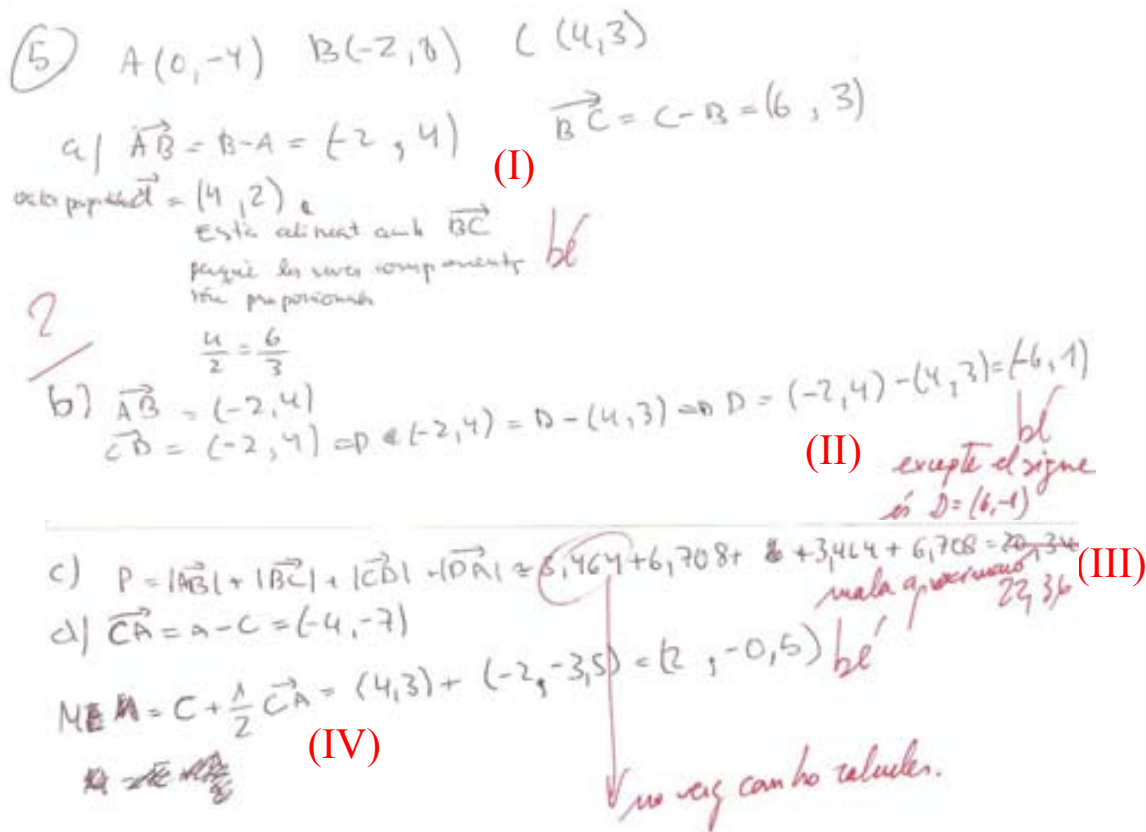 5 A(0,-4) B(-2,0) C(4,3)
a) AB = B-A = (-2, 4) BC = C-B = (6, 3)
(I)
= (4,2).
Està alineat amb BC
perquè les seves components
són proporcionals
bé
4/2 = 6/3
2
b) AB = (-2,4)
CD = (-2,4) => (-2,4) = D-(4,3) => D = (-2,4)-(4,3)=(-6,1)
(II)
bé
excepte el signe
és D=(6,-1)
c) P = |AB| + |BC| + |CD| + |DA| = 3,464+6,708+ +3,464+6,708 = 20,34
(III)
mala aproximació
22,36
d) CA = A-C = (-4,-7)
M = C + 1/2 CA = (4,3) + (-2,-3,5) = (2, -0,5)
bé
(IV)
no veig com ho calcules.